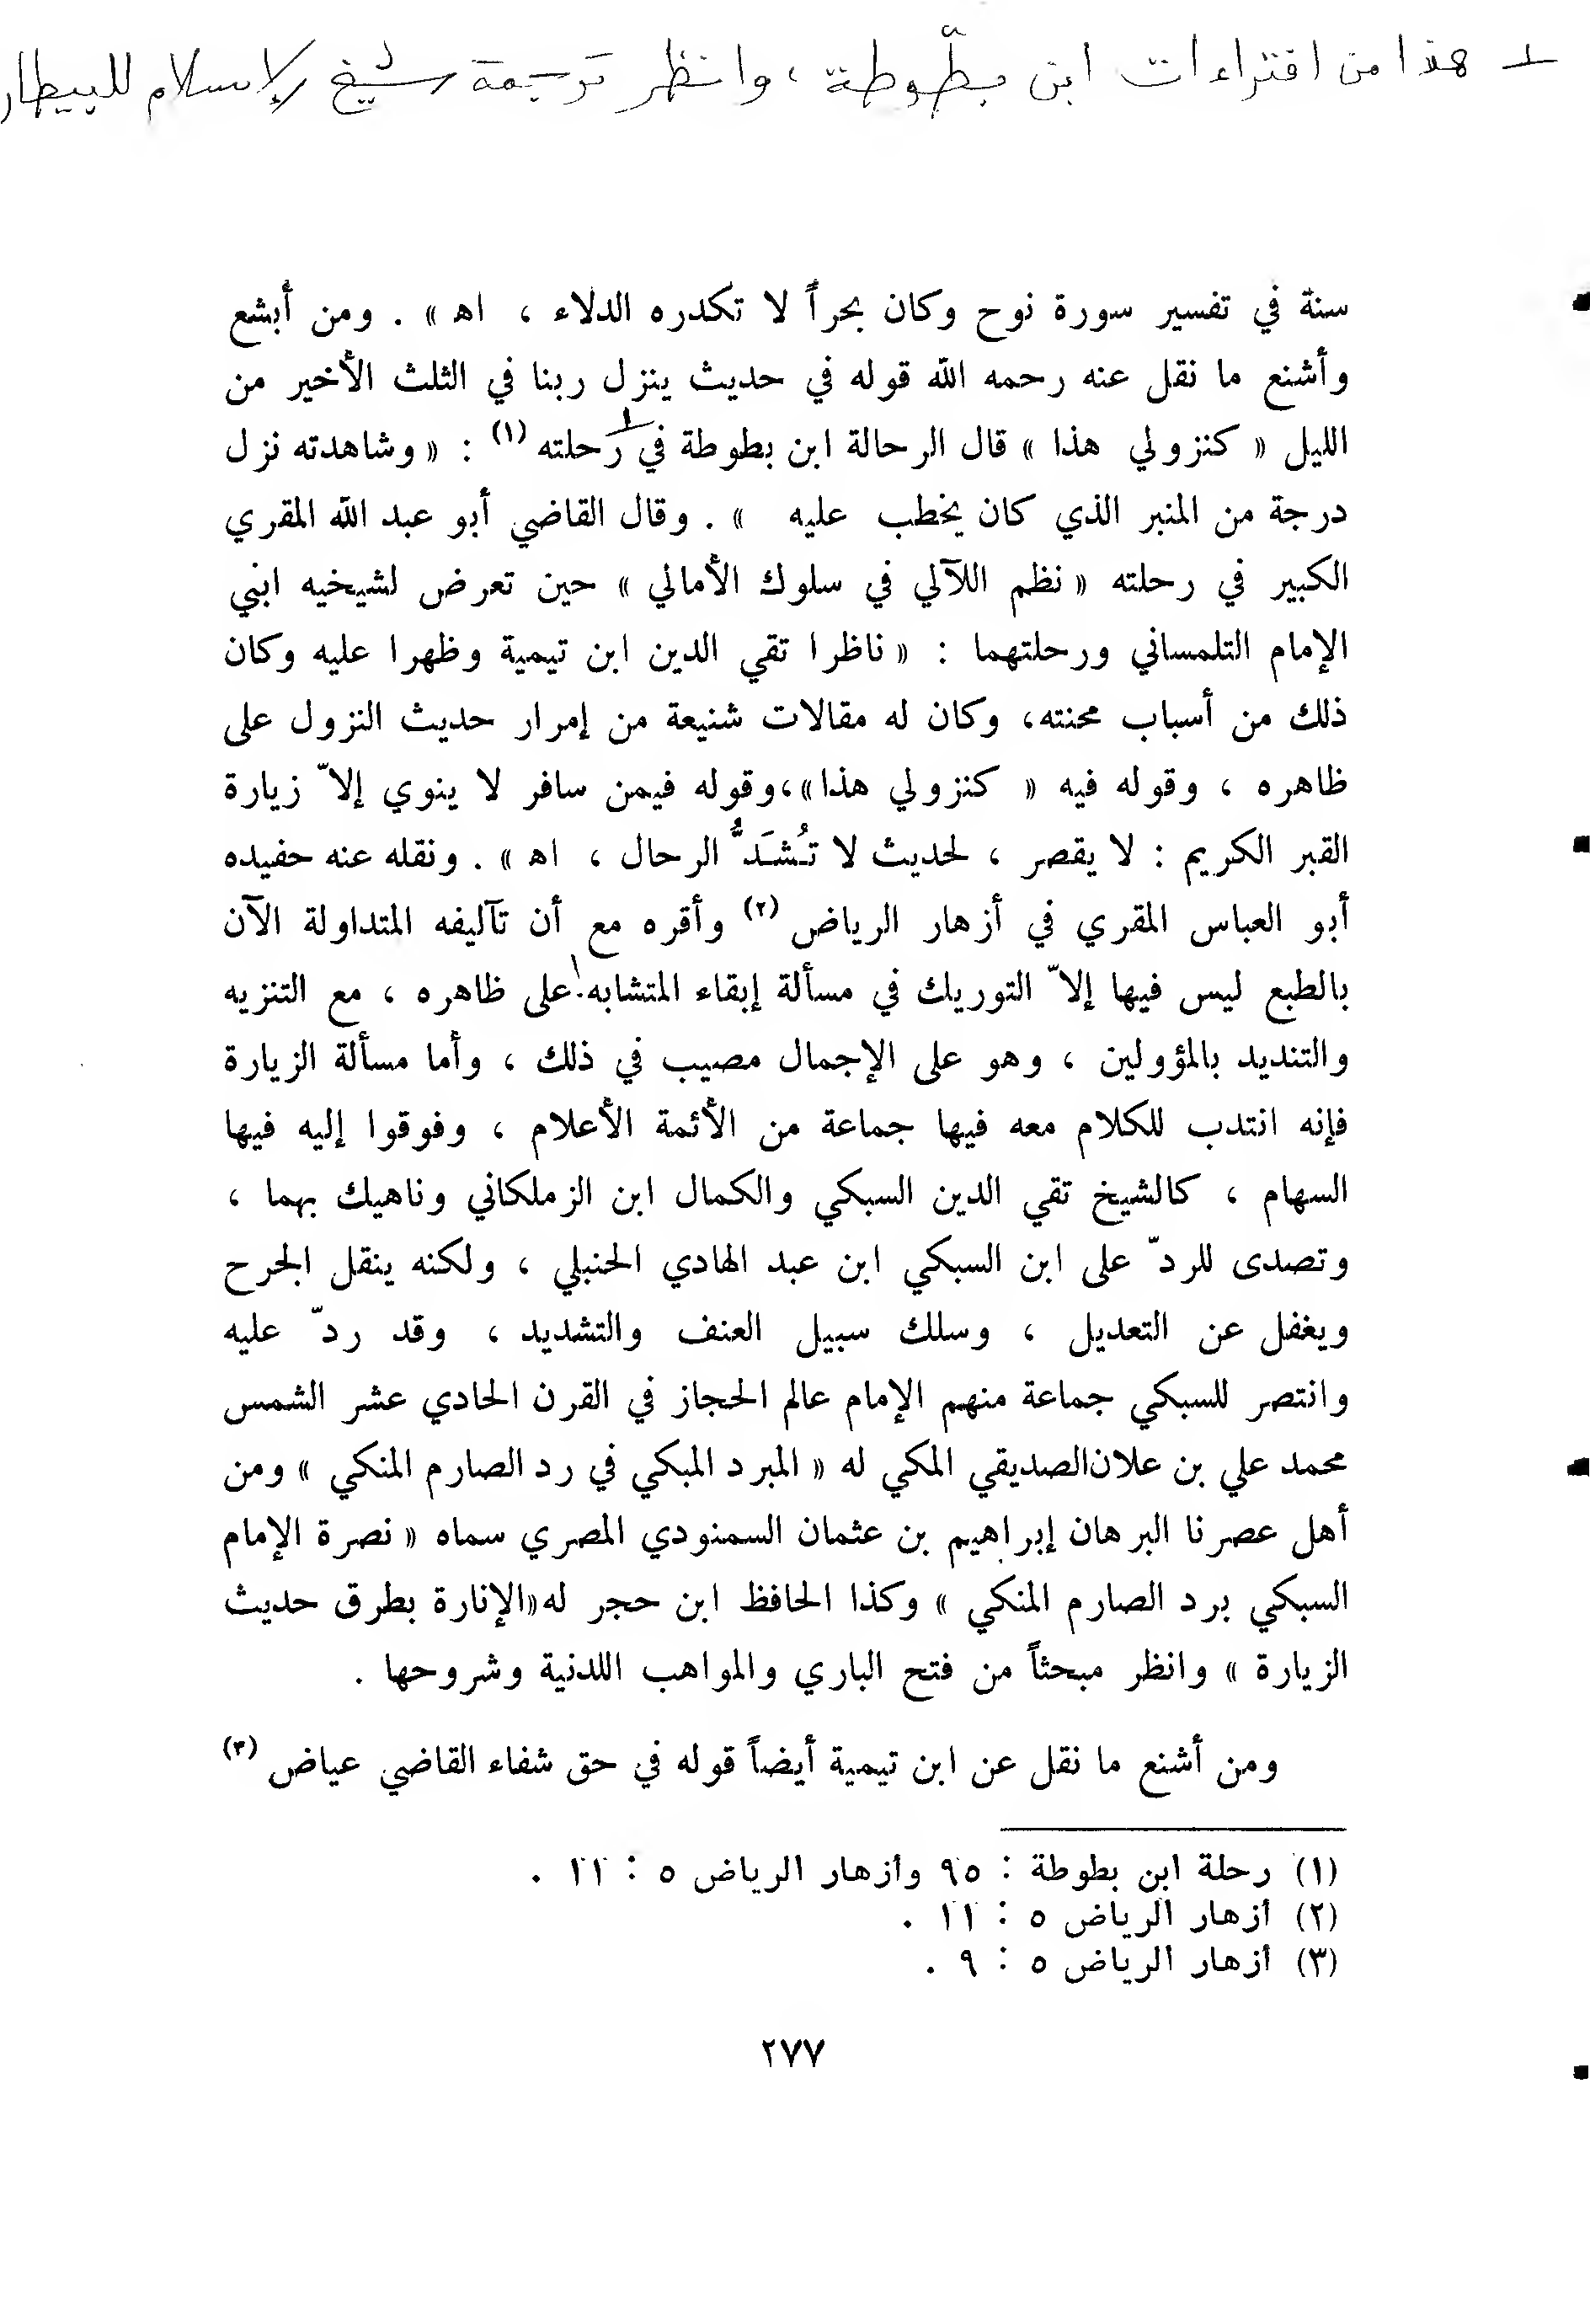 هذا من افتراءات ابن بطّوطة ، وانظر ترجمة شيخ الإسلام للبيطار
سنة في تفسير سورة نوح وكان بحراً لا تكدره الدلاء ، اه » . ومن أبشع
وأشنع ما نقل عنه رحمه الله قوله في حديث ينزل ربنا في الثلث الأخير من
الليل « كنزولي هذا » قال الرحالة ابن بطوطة في رحلته (١) : « وشاهدته نزل
درجة من المنبر الذي كان يخطب عليه » . وقال القاضي أبو عبد الله المقري
الكبير في رحلته « نظم اللآلي في سلوك الأمالي » حين تعرض لشيخيه ابني
الإمام التلمساني ورحلتهما : « ناظرا تقي الدين ابن تيمية وظهرا عليه وكان
ذلك من أسباب محنته، وكان له مقالات شنيعة من إمرار حديث النزول على
ظاهره ، وقوله فيه « كنزولي هذا»،وقوله فيمن سافر لا ينوي إلاّ زيارة
القبر الكريم : لا يقصر ، لحديث لا تُشَدُّ الرحال ، اه » . ونقله عنه حفيده
أبو العباس المقري في أزهار الرياض (٢) وأقره مع أن تآليفه المتداولة الآن
بالطبع ليس فيها إلاّ التوريك في مسألة إبقاء المتشابه على ظاهره ، مع التنزيه
والتنديد بالمؤولين ، وهو على الإجمال مصيب في ذلك ، وأما مسألة الزيارة
فإنه انتدب للكلام معه فيها جماعة من الأئمة الأعلام ، وفوقوا إليه فيها
السهام ، كالشيخ تقي الدين السبكي والكمال ابن الزملكاني وناهيك بهما ،
وتصدى للردّ على ابن السبكي ابن عبد الهادي الحنبلي ، ولكنه ينقل الجرح
ويغفل عن التعديل ، وسلك سبيل العنف والتشديد ، وقد ردّ عليه
وانتصر للسبكي جماعة منهم الإمام عالم الحجاز في القرن الحادي عشر الشمس
محمد علي بن علان الصديقي المكي له « المبرد المبكي في رد الصارم المنكي » ومن
أهل عصرنا البرهان إبراهيم بن عثمان السمنودي المصري سماه « نصرة الإمام
السبكي برد الصارم المنكي » وكذا الحافظ ابن حجر له«الإنارة بطرق حديث
الزيارة » وانظر مبحثاً من فتح الباري والمواهب اللدنية وشروحها .
ومن أشنع ما نقل عن ابن تيمية أيضاً قوله في حق شفاء القاضي عياض (٣)
(١) رحلة ابن بطوطة : ٩٥ وأزهار الرياض ٥ : ١١ .
(٢) أزهار الرياض ٥ : ١١ .
(٣) أزهار الرياض ٥ : ٩ .
٢٧٧